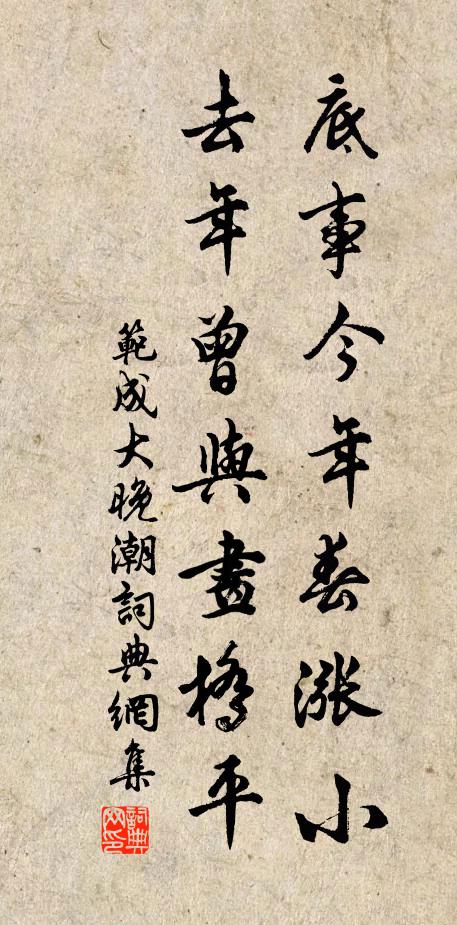 底事今年春漲小
去年曾與畫橋平
範成大晚潮詞典網集
詞典网印